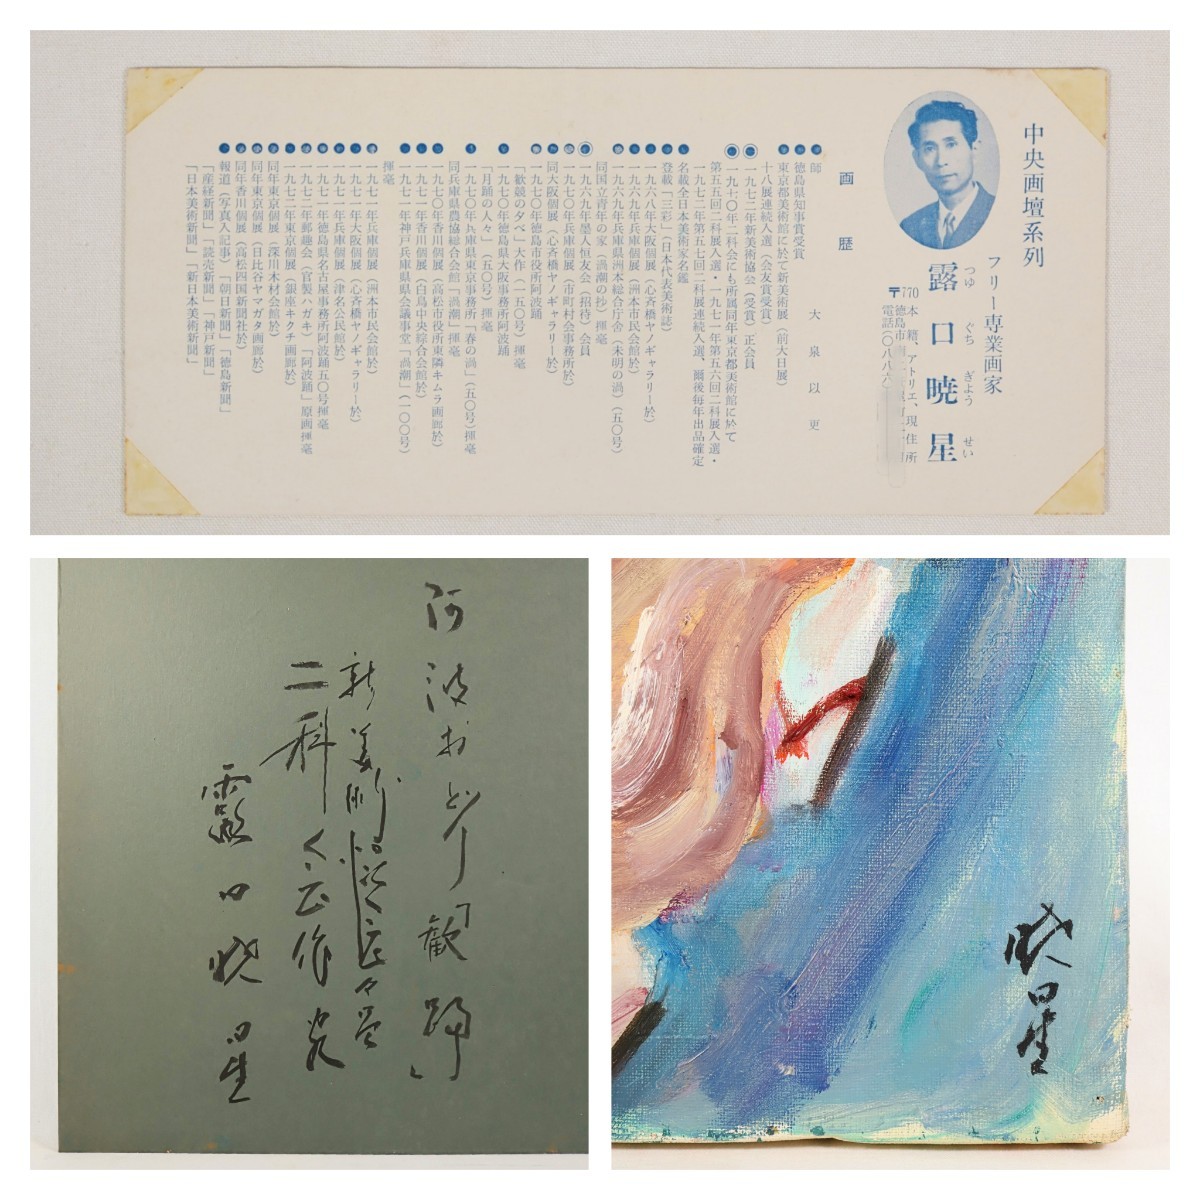 中央画壇系列
フリー専業画家
露口暁星
つゆ ぐち ぎよう せい
〒770 本籍、アトリエ、現住所
徳島市
電話(〇八八六)
画歴
師 大泉以更
徳島県知事賞受賞
東京都美術館に於て新美術展(前大日展)
十八展連続入選(会友賞受賞)
一九七二年新美術協会(受賞)正会員
一九七〇年二科会にも所属同年東京都美術館に於て
第五五回二科展入選・一九七一年第五六回二科展入選・
一九七二年第五七回二科展連続入選、爾後毎年出品確定
名載全日本美術家名鑑
登載「三彩」(日本代表美術誌)
一九六八年大阪個展(心斉橋ヤノギャラリー於)
一九六九年兵庫個展(洲本市民会館於)
一九六九年兵庫県洲本総合庁舎(未明の渦)(五〇号)
同国立青年の家(渦潮の抄)揮毫
一九六九年墨人恒友会(招待)会員
一九七〇年兵庫個展(市町村会事務所於)
同大阪個展(心斉橋ヤノギャラリー於)
一九七〇年徳島市役所阿波踊
「歓競の夕べ」大作(一五〇号)揮毫
一九七〇年徳島県大阪事務所阿波踊
「月踊の人々」(五〇号)揮毫
一九七〇年兵庫県東京事務所「春の渦」(五〇号)揮毫
同兵庫県農協総合会館「渦潮」揮毫
一九七〇年香川個展(高松市役所東隣キムラ画廊於)
一九七一年香川個展(白鳥中央綜合会館於)
一九七一年神戸兵庫県県会議事堂「渦潮」(一〇〇号)
揮毫
一九七一年兵庫個展(洲本市民会館於)
一九七一年大阪個展(心斉橋ヤノギャラリー於)
一九七一年兵庫個展(津名公民館於)
一九七二年徳島県名古屋事務所阿波踊五〇号揮毫
一九七二年郵趣会(官製ハガキ)「阿波踊」原画揮毫
一九七二年東京個展(銀座キクチ画廊於)
同年東京個展(深川木材会館於)
同年東京個展(日比谷ヤマガタ画廊於)
同年香川個展(高松四国新聞社於)
報道(写真入記事)「朝日新聞」「徳島新聞」
「産経新聞」「読売新聞」「神戸新聞」
「日本美術新聞」「新日本美術新聞」
阿波おどり「歓踊」
新美術協会会員
二科会
露口暁星
暁星